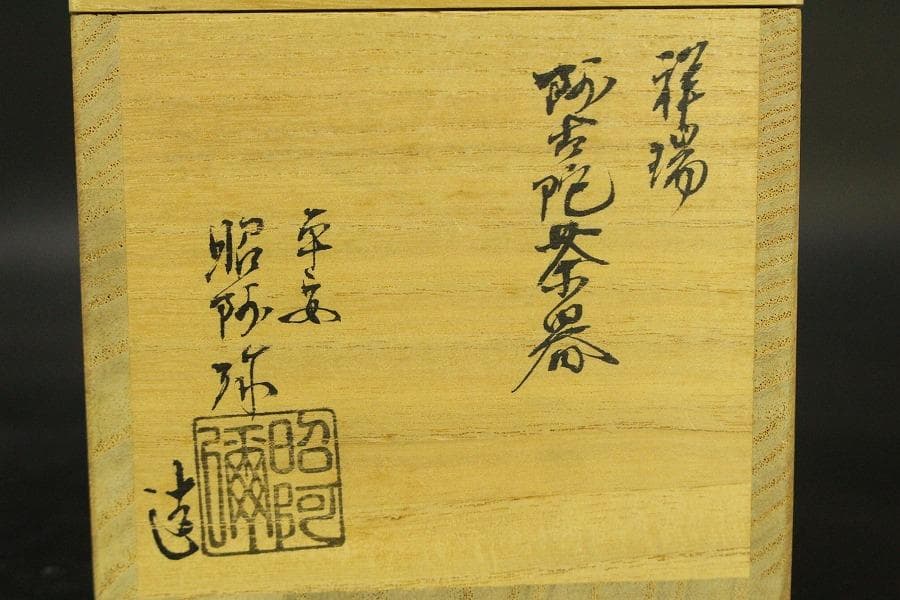 祥瑞
阿古陀茶器
平安
昭阿弥
造
昭阿
彌